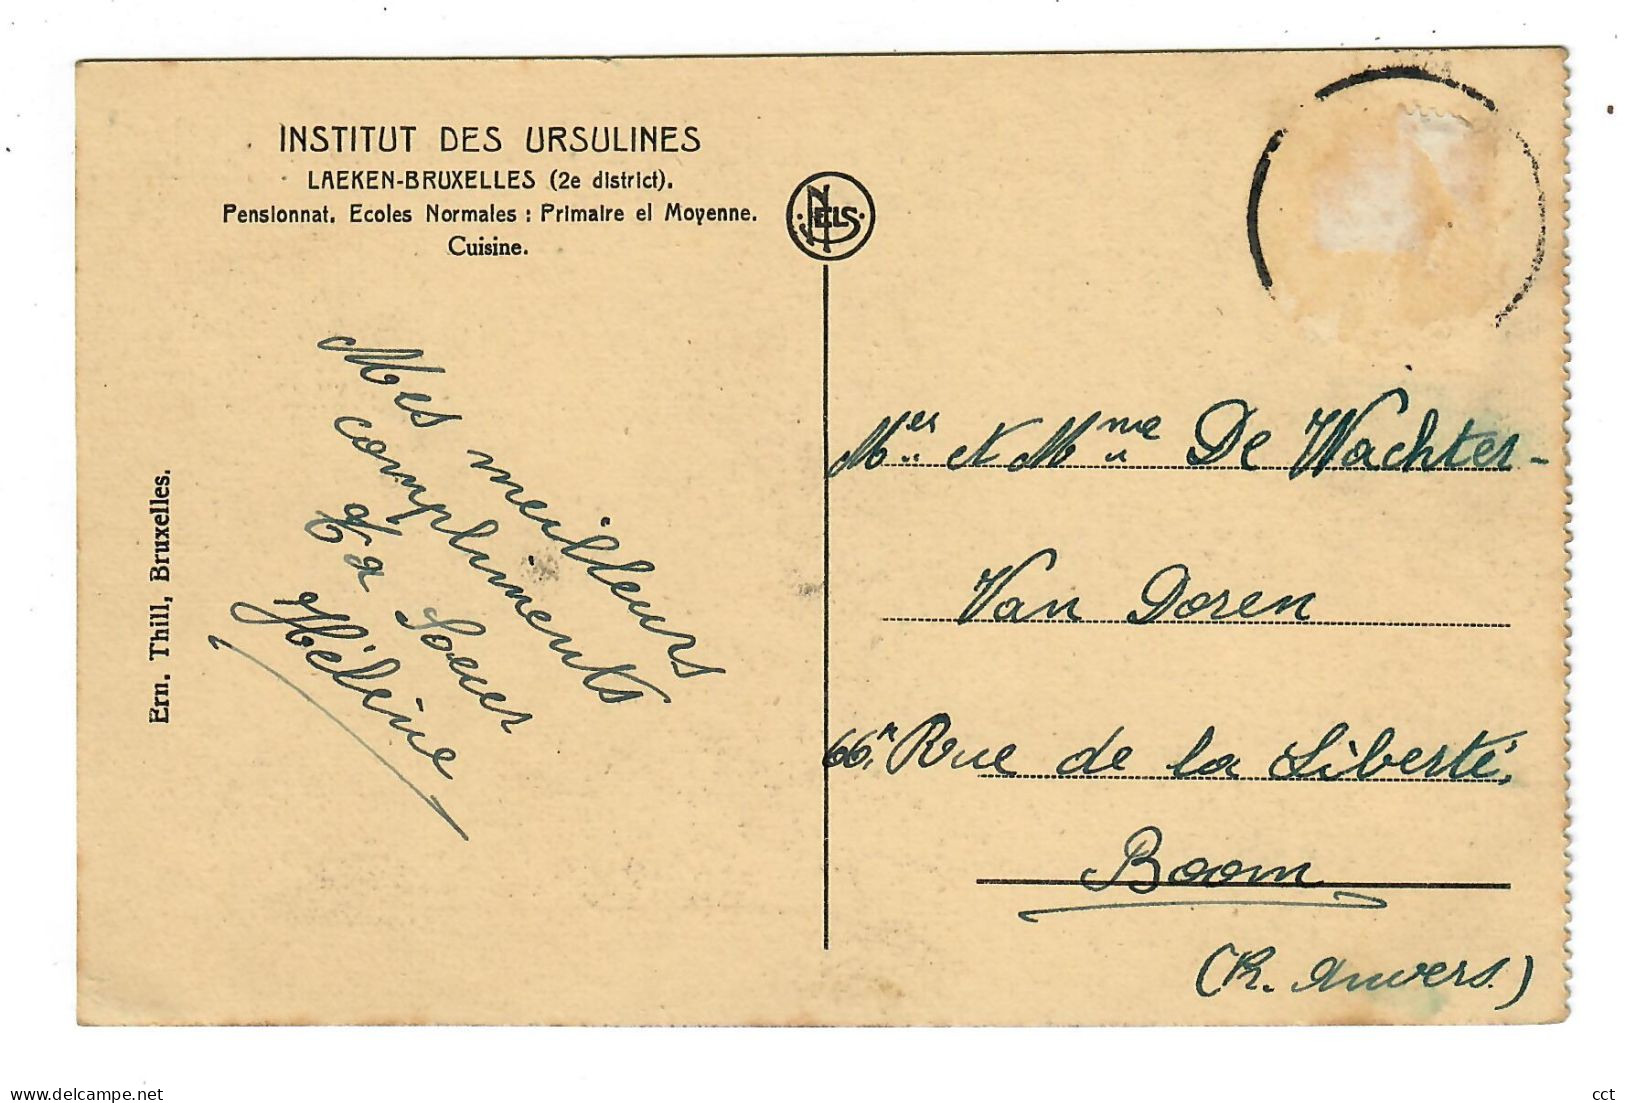 INSTITUT DES URSULINES
LAEKEN-BRUXELLES (2e district).
Pensionnat. Ecoles Normales : Primaire et Moyenne.
Cuisine.
NELS
Ern. Thill, Bruxelles.
Mes meilleurs
compliments
Ta Soeur
Hélène
Mer et Mme De Wachter-
Van Doren
66, Rue de la Liberté,
Boom
(Pr. Anvers.)
delcampe.net
cct